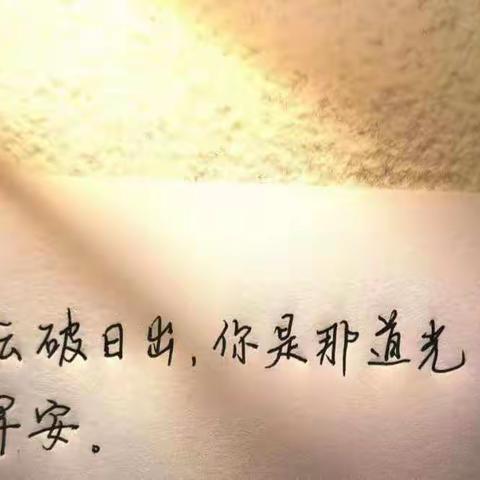 云破日出,你是那道光
早安。